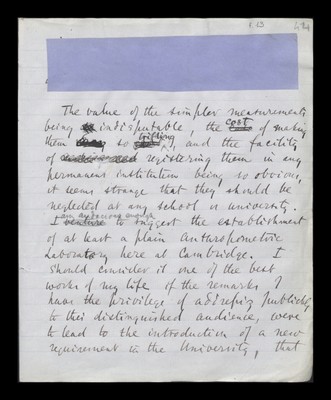 The value of the simpler measurements
being indisputable, the cost of making
them so trifling, and the facility
of registering them in any
permanent institution being so obvious,
it seems strange that they should be
neglected at any school or university.
I am anxious enough
venture to suggest the establishment
of at least a plain Anthropometric
Laboratory here at Cambridge. I
should consider it one of the best
works of my life if the remarks I
have the privilege of addressing publicly
to this distinguished audience, were
to lead to the introduction of a new
requirement in the University, that